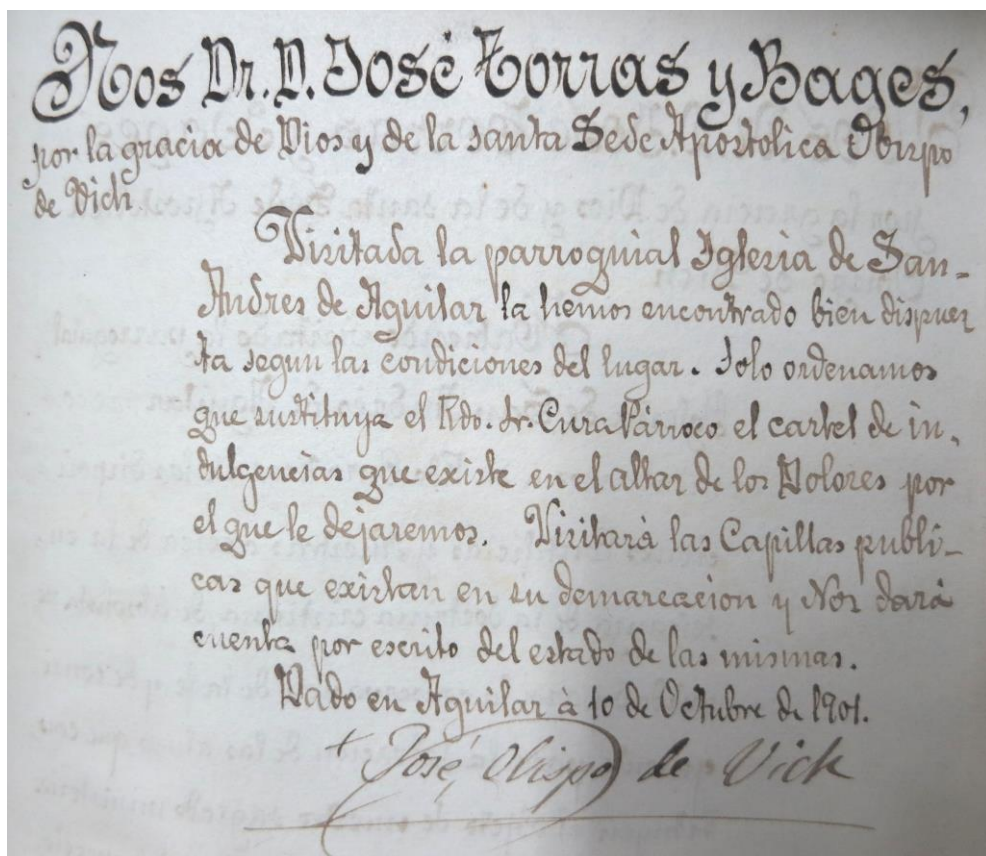 Nos Dr. D. José Torras y Bages,
por la gracia de Dios y de la santa Sede Apostolica Obispo
de Vich.
Visitada la parroquial Iglesia de San-
Andres de Aguilar la hemos encontrado bien dispues
ta segun las condiciones del lugar. Solo ordenamos
que sustituya el Rdo. Sr. Cura Párroco el cartel de in-
dulgencias que existe en el altar de los Dolores por
el que le dejaremos. Visitará las Capillas publi-
cas que existan en su demarcacion y Nos dará
cuenta por escrito del estado de las mismas.
Dado en Aguilar à 10 de Octubre de 1901.
+ José, Obispo de Vich